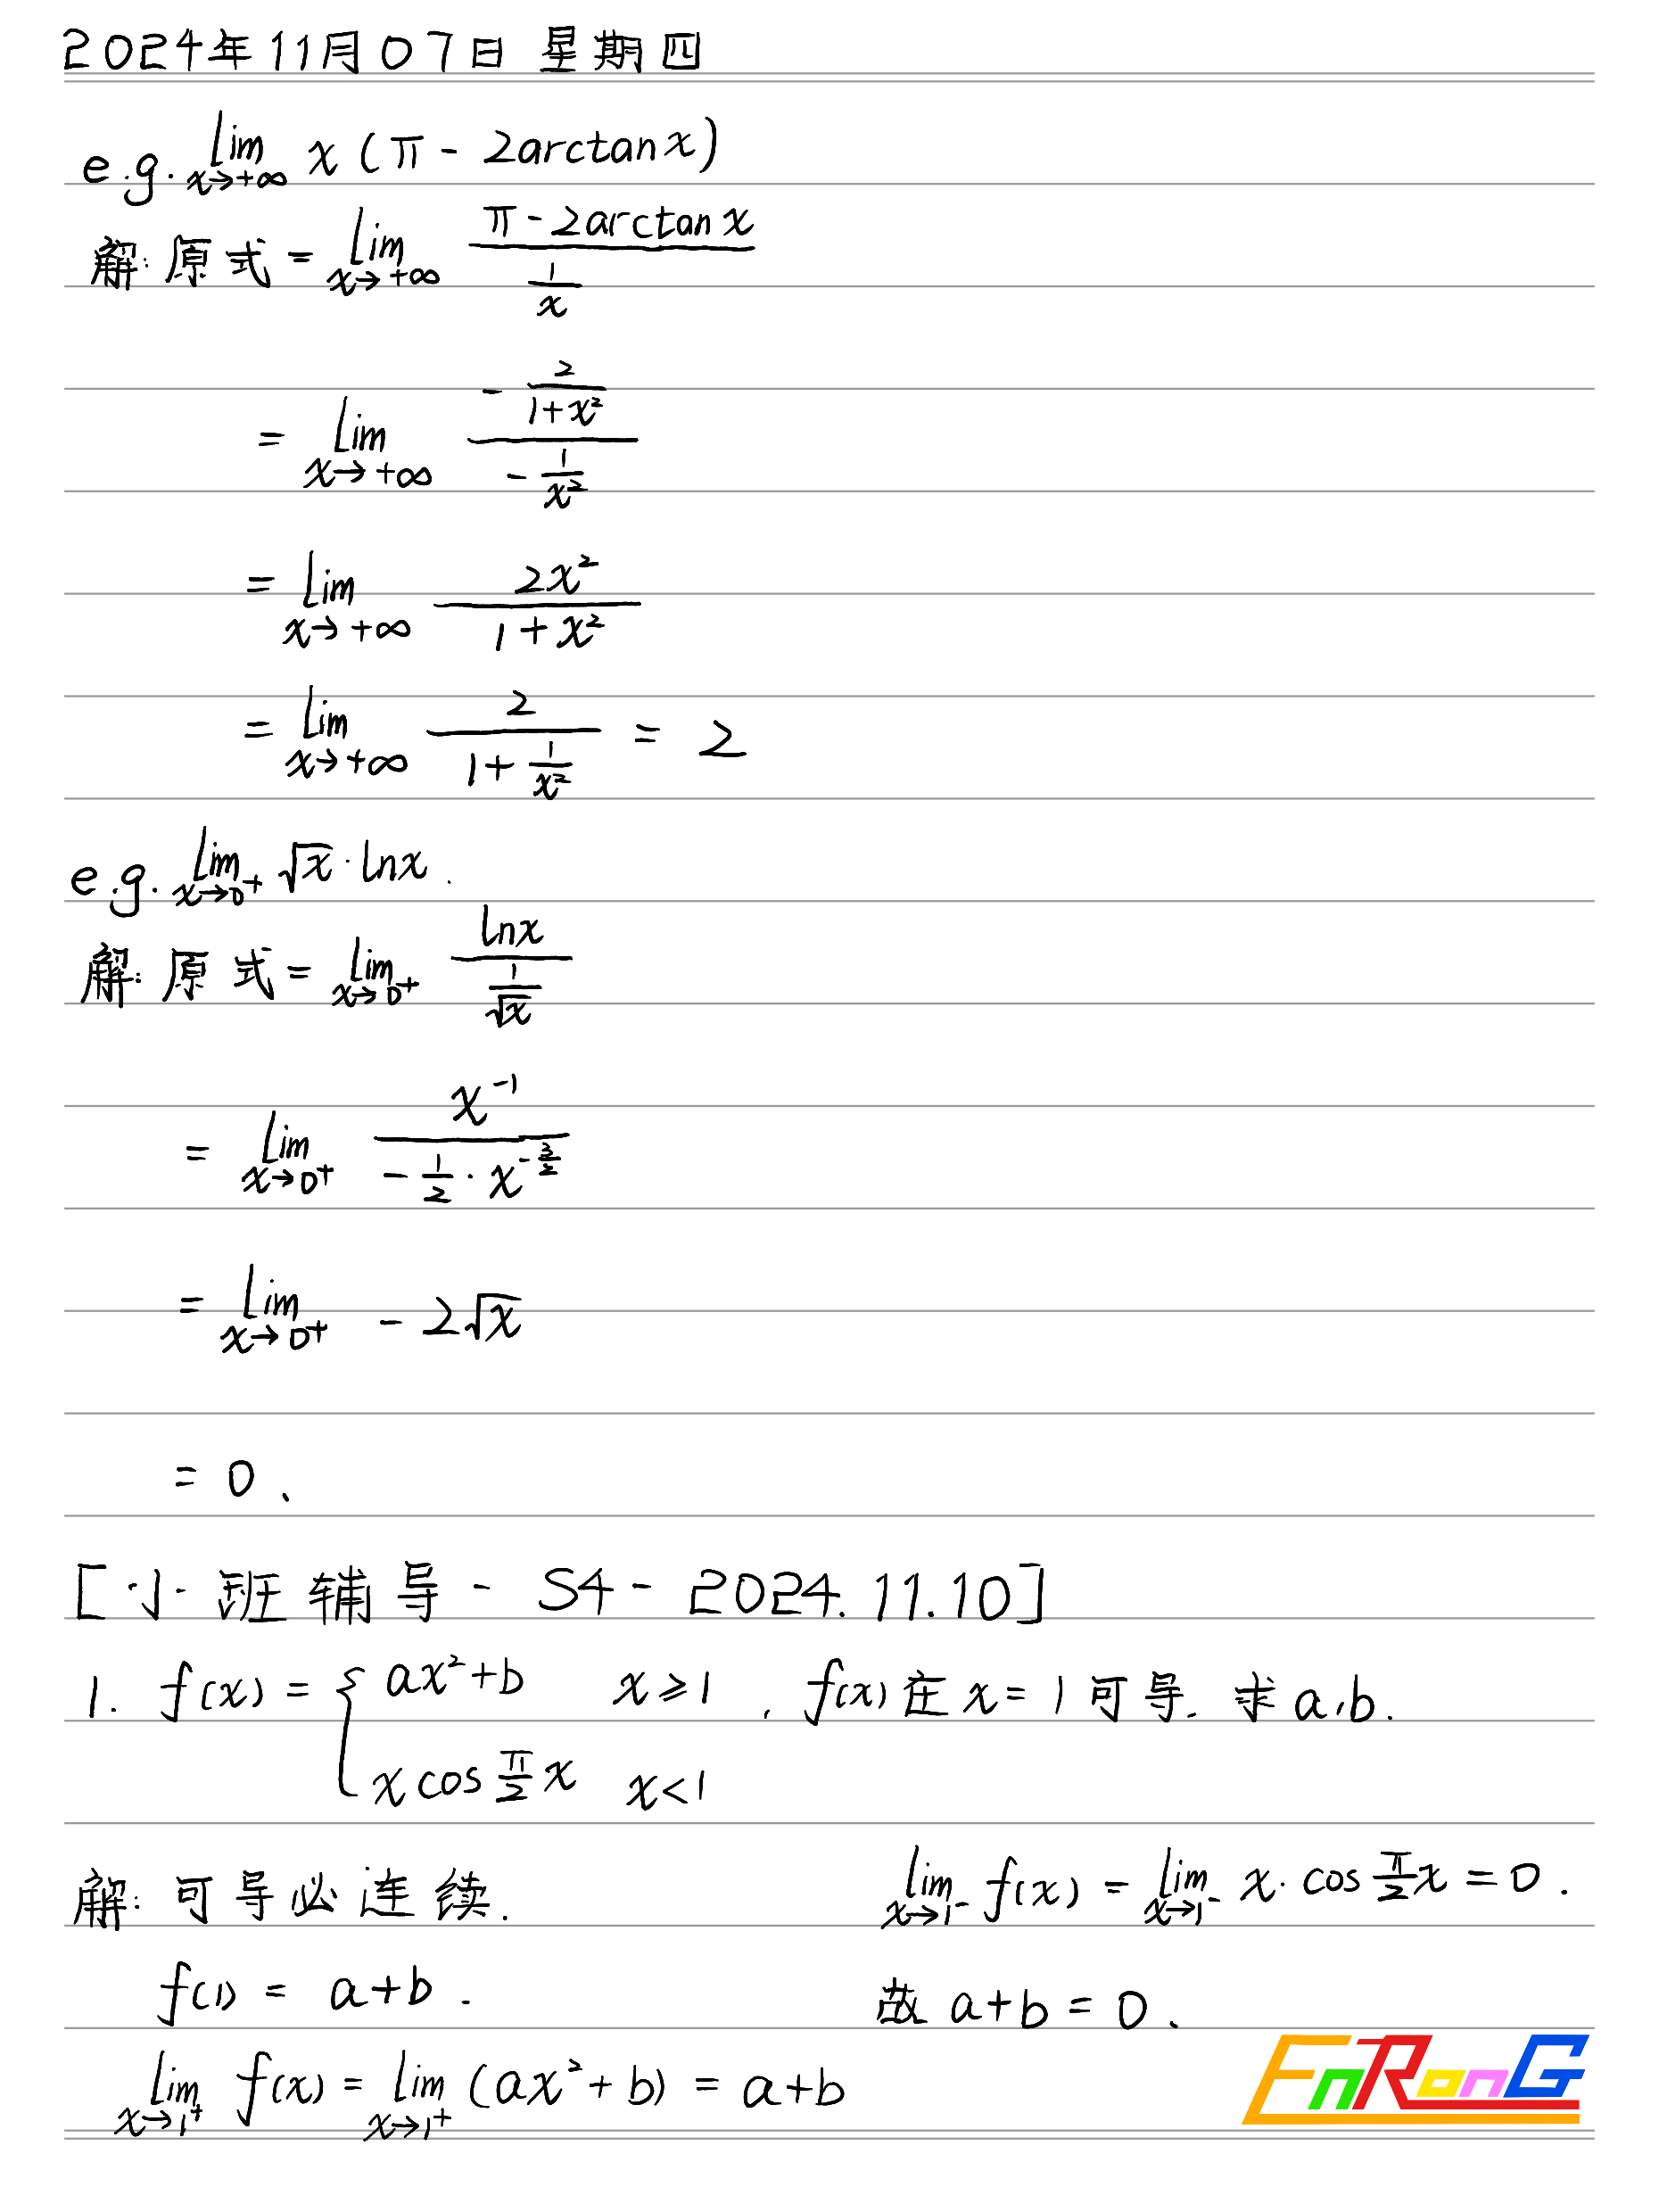 2024年11月07日 星期四
e.g. lim x→+∞ x(π - 2arctanx)
解: 原式 = lim x→+∞ (π - 2arctanx)/(1/x)
= lim x→+∞ (- 2/(1+x²))/(- 1/x²)
= lim x→+∞ 2x²/(1+x²)
= lim x→+∞ 2/(1+1/x²) = 2
e.g. lim x→0⁺ √x · lnx.
解: 原式 = lim x→0⁺ lnx/(1/√x)
= lim x→0⁺ x⁻¹/(-1/2 · x^(-3/2))
= lim x→0⁺ -2√x
= 0.
[小班辅导 - S4 - 2024.11.10]
1. f(x) = { ax²+b x≥1 , f(x)在x=1可导. 求a,b.
xcos π/2 x x<1
解: 可导必连续.
f(1) = a+b.
lim x→1⁺ f(x) = lim x→1⁺ (ax²+b) = a+b
lim x→1⁻ f(x) = lim x→1⁻ x·cos π/2 x = 0.
故 a+b = 0.
EnRonG